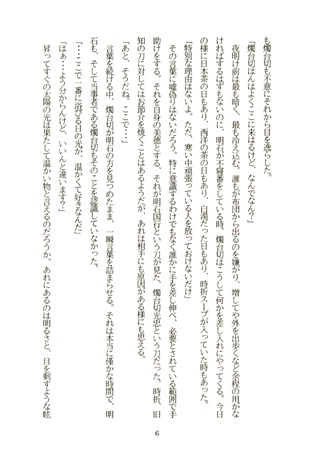 も燭台切も不意にそれから目を逸らした。
「燭台切はんはよくここに来はるけど、なんでなん？」
夜明け前は最も暗く、最も冷え込む。誰もが布団から出るのを嫌がり、増してや外を出歩くなど余程の用がな
ければするはずもないのに、明石が不寝番をしている時、燭台切はこうして何かを差し入れにやってくる。今日
の様に日本茶の日もあり、西洋の茶の日もあり、白湯だった日もあり、時折スープが入っていた時もあった。
「特別な理由はないよ。ただ、寒い中頑張っている人を放っておけないだけ」
その言葉に嘘偽りはないだろう。特に意識するわけでもなく誰かに手を差し伸べ、必要とされている範囲で手
助けをする。それが自身の美徳とする。それが明石国行という刀が見た、燭台切光忠という刀だった。時折、旧
知の刀に対してはお節介を焼くことはあるようだが、あれは相手にも原因がある様にも思える。
「あと、そうだね。ここで・・」
言葉を続ける中、燭台切が明石の方を見つめたまま、一瞬言葉を詰まらせる。それは本当に僅かな時間で、明
石も、そして当事者である燭台切もそのことを認識していなかった。
「・・・ここで一番に浴びる日の光が、温かくて好きなんだ」
「はぁ・・よう分からんけど、いいんと違います？」
昇ってすぐの太陽の光は果たして温かい物と言えるのだろうか。あれにあるのは明るさと、目を刺すような眩
6